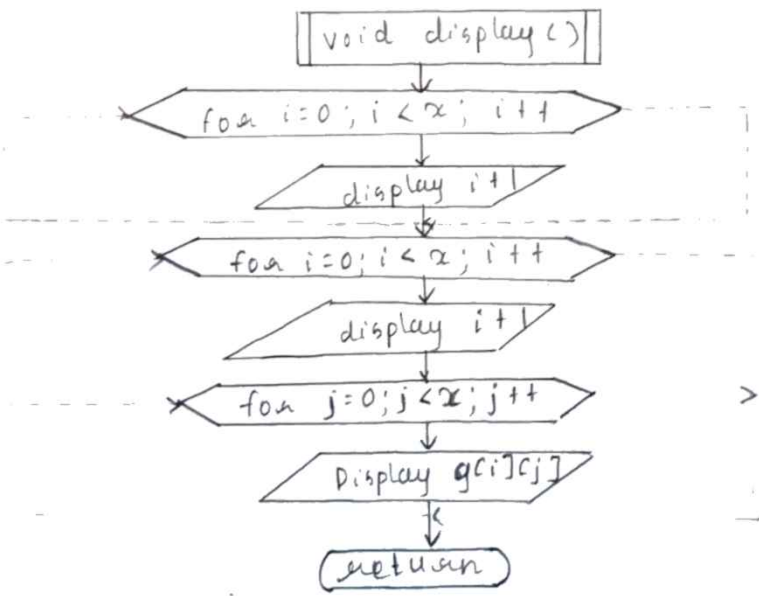 void display()
for i=0; i<x; i++
display i+1
for i=0; i<x; i++
display i+1
for j=0; j<x; j++
Display g[i][j]
return